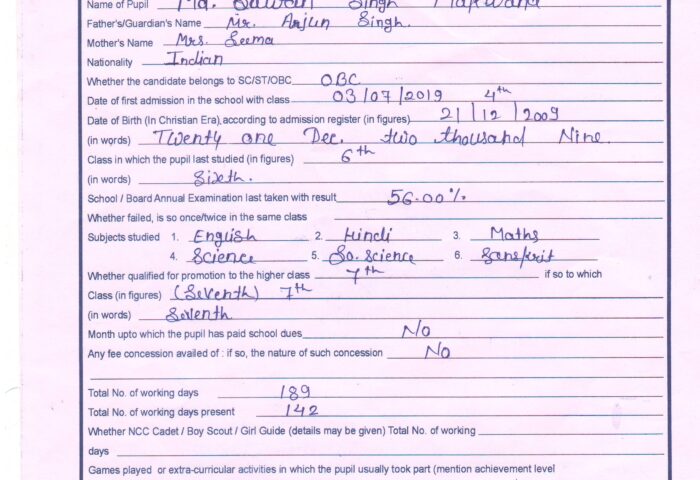 Name of Pupil Singh
Father's/Guardian's Name Mr. Arjun Singh.
Mother's Name Mrs. Seema
Nationality Indian
Whether the candidate belongs to SC/ST/OBC OBC
Date of first admission in the school with class 03/07/2019 4th
Date of Birth (In Christian Era) according to admission register (in figures) 21/12/2009
(in words) Twenty one Dec. two thousand Nine.
Class in which the pupil last studied (in figures) 6th
(in words) Sixth.
School / Board Annual Examination last taken with result 56.00%
Whether failed, is so once/twice in the same class
Subjects studied 1. English 2. Hindi 3. Maths
4. Science 5. So. Science 6. Sanskrit
Whether qualified for promotion to the higher class 7th if so to which
Class (in figures) (Seventh) 7th
(in words) Seventh
Month upto which the pupil has paid school dues No
Any fee concession availed of : if so, the nature of such concession No
Total No. of working days 189
Total No. of working days present 142
Whether NCC Cadet / Boy Scout / Girl Guide (details may be given) Total No. of working
days
Games played or extra-curricular activities in which the pupil usually took part (mention achievement level